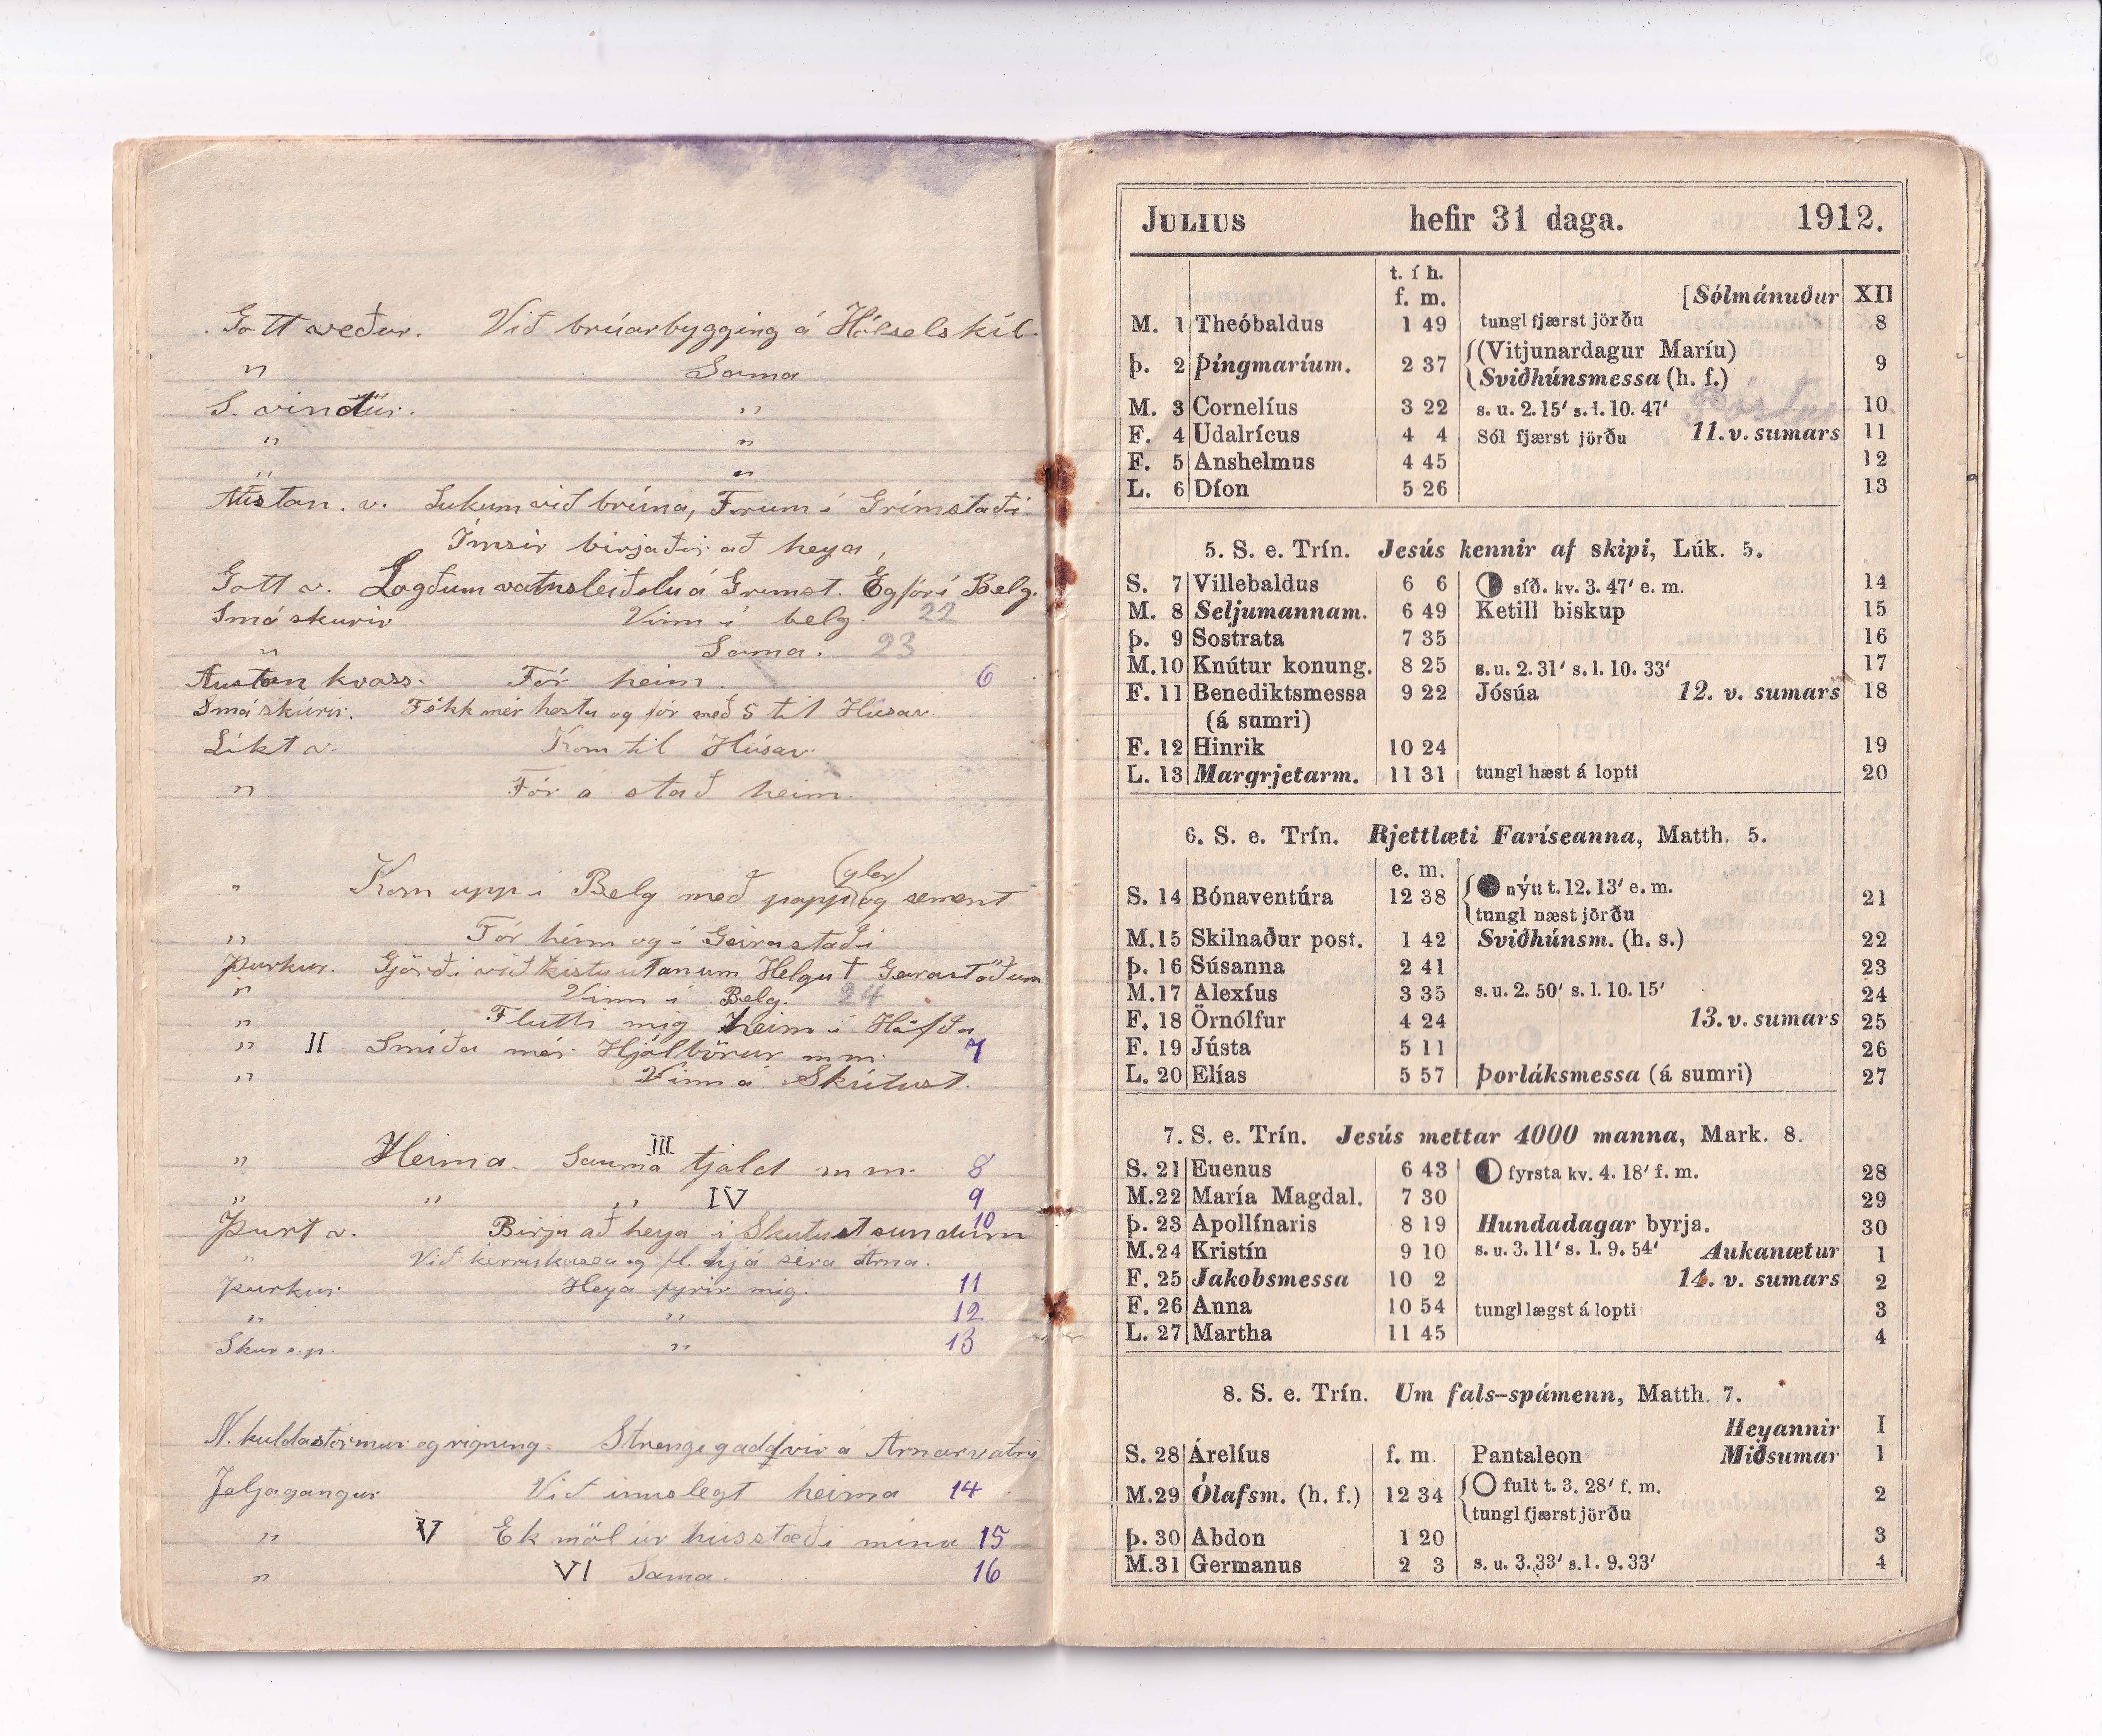 Gott veður. Við brúarbygging á Hólselskíl
" Sama
S. vindur. "
" "
"
Austan. v. Lukum við brúna, Forum í Grímstaði
Ímsir birjaðir að heya,
Gott v. Logðum vatnsleiðslu á Grímst. Eg fór í Belg.
Smá skurir Vinn í belg. 22
" Sama. 23
Austan kvass. Fór heim. 6
Smáskúrir. Fékk mér hesta og fór með S til Húsav.
Líkt v. Kom til Húsav.
" Fór á stað heim.
(gler)
" Kom upp í Belg með papp og sement
" Fór heim og í Geirastaði
Þurkur. Gjörði við kistu utanum Helgu † Geirastöðum
" Vinn í Belg. 24
" Flutti mig heim í Höfða
" II Smíða mér Hjólbörur m m. 7
" Vinn á Skútust.
III
" Heima. Sauma tjald m m. 8
" " " IV 9
Þurt v. Birja að heya í Skutustsundum 10
" Við kerrukassa og fl. hjá séra Árna.
Þurkur Heya fyrir mig. 11
" " 12
Skur e.p. " 13
N. kuldastormur og rigning. Strengi gaddvír á Arnarvatni
Jeljagangur Við innslegt heima 14
" V Ek möl úr hússtæði mínu 15
" VI Sama. 16
JULIUS hefir 31 daga. 1912.
t. í h.
f. m. [Sólmánuður XII
M. 1 Theóbaldus 1 49 tungl fjærst jörðu 8
Þ. 2 Þingmaríum. 2 37 (Vitjunardagur Maríu) 9
Sviðhúnsmessa (h. f.)
Póstur
M. 3 Cornelíus 3 22 s. u. 2. 15′ s. l. 10. 47′ 10
F. 4 Udalrícus 4 4 Sól fjærst jörðu 11. v. sumars 11
F. 5 Anshelmus 4 45 12
L. 6 Díon 5 26 13
5. S. e. Trín. Jesús kennir af skipi, Lúk. 5.
S. 7 Villebaldus 6 6 síð. kv. 3. 47′ e. m. 14
M. 8 Seljumannam. 6 49 Ketill biskup 15
Þ. 9 Sostrata 7 35 16
M. 10 Knútur konung. 8 25 s. u. 2. 31′ s. l. 10. 33′ 17
F. 11 Benediktsmessa 9 22 Jósúa 12. v. sumars 18
(á sumri)
F. 12 Hinrik 10 24 19
L. 13 Margrjetarm. 11 31 tungl hæst á lopti 20
6. S. e. Trín. Rjettlæti Faríseanna, Matth. 5.
e. m.
S. 14 Bónaventúra 12 38 nýtt t. 12. 13′ e. m. 21
tungl næst jörðu
M. 15 Skilnaður post. 1 42 Sviðhúnsm. (h. s.) 22
Þ. 16 Súsanna 2 41 23
M. 17 Alexíus 3 35 s. u. 2. 50′ s. l. 10. 15′ 24
F. 18 Örnólfur 4 24 13. v. sumars 25
F. 19 Jústa 5 11 26
L. 20 Elías 5 57 Þorláksmessa (á sumri) 27
7. S. e. Trín. Jesús mettar 4000 manna, Mark. 8.
S. 21 Euenus 6 43 fyrsta kv. 4. 18′ f. m. 28
M. 22 María Magdal. 7 30 29
Þ. 23 Apollínaris 8 19 Hundadagar byrja. 30
M. 24 Kristín 9 10 s. u. 3. 11′ s. l. 9. 54′ Aukanætur 1
F. 25 Jakobsmessa 10 2 14. v. sumars 2
F. 26 Anna 10 54 tungl lægst á lopti 3
L. 27 Martha 11 45 4
8. S. e. Trín. Um fals-spámenn, Matth. 7.
Heyannir I
S. 28 Árelíus f. m. Pantaleon Miðsumar 1
M. 29 Ólafsm. (h. f.) 12 34 fult t. 3. 28′ f. m. 2
tungl fjærst jörðu
Þ. 30 Abdon 1 20 3
M. 31 Germanus 2 3 s. u. 3. 33′ s. l. 9. 33′ 4